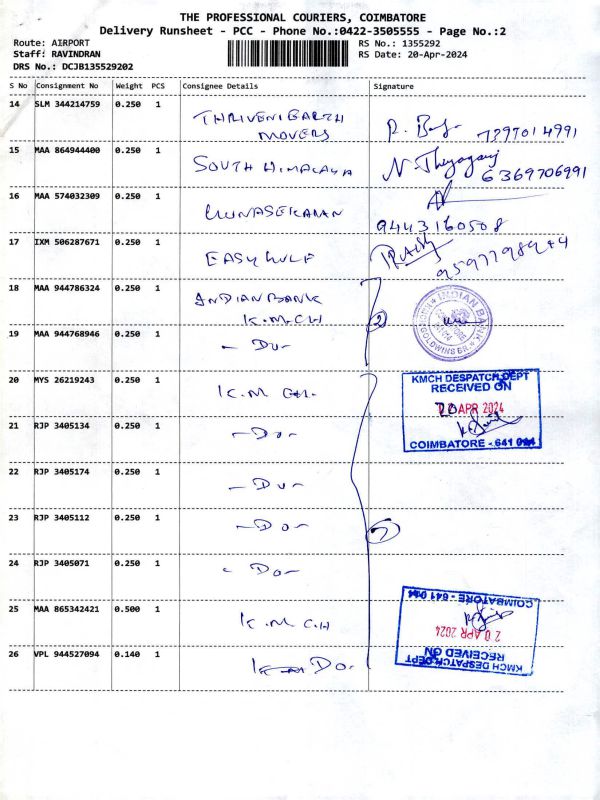 THE PROFESSIONAL COURIERS, COIMBATORE
Delivery Runsheet - PCC - Phone No.:0422-3505555 - Page No.:2
Route: AIRPORT RS No.: 1355292
Staff: RAVINDRAN RS Date: 20-Apr-2024
DRS No.: DCJB135529202
S No Consignment No Weight PCS Consignee Details Signature
14 SLM 344214759 0.250 1 THRIVENI EARTH
MOVERS 7397014991
15 MAA 864944400 0.250 1 SOUTH HIMALAYA 6369706991
16 MAA 574032309 0.250 1 GUNASEKARAN
9443160508
17 IXM 506287671 0.250 1 EASY GULF
18 MAA 944786324 0.250 1 INDIAN BANK
K.M.C.H 2
INDIAN BANK
GOLDWINS BR.
19 MAA 944768946 0.250 1 - Do -
20 MYS 26219243 0.250 1 K.M CH.
KMCH DESPATCH DEPT
RECEIVED ON
20 APR 2024
COIMBATORE - 641 014
21 RJP 3405134 0.250 1 - Do -
22 RJP 3405174 0.250 1 - Do -
23 RJP 3405112 0.250 1 - Do - 7
24 RJP 3405071 0.250 1 - Do -
25 MAA 865342421 0.500 1 K.M.C.H
KMCH DESPATCH DEPT
RECEIVED ON
20 APR 2024
COIMBATORE - 641 014
26 VPL 944527094 0.140 1 Do -